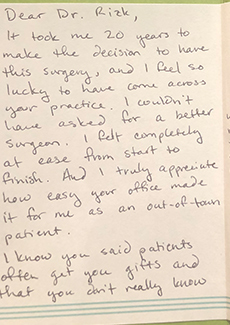 Dear Dr. Rizk,
It took me 20 years to
make the decision to have
this surgery, and I feel so
lucky to have come across
your practice. I couldn't
have asked for a better
surgeon. I felt completely
at ease from start to
finish. And I truly appreciate
how easy your office made
it for me as an out-of-town
patient.
I know you said patients
often get you gifts and
that you don't really know